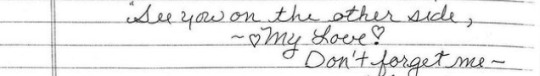 "See you on the other side,
~♡My Love♡
Don't forget me~